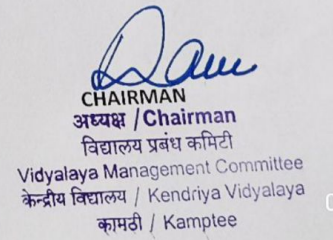 CHAIRMAN
अध्यक्ष / Chairman
विद्यालय प्रबंध कमिटी
Vidyalaya Management Committee
केन्द्रीय विद्यालय / Kendriya Vidyalaya
कामठी / Kamptee